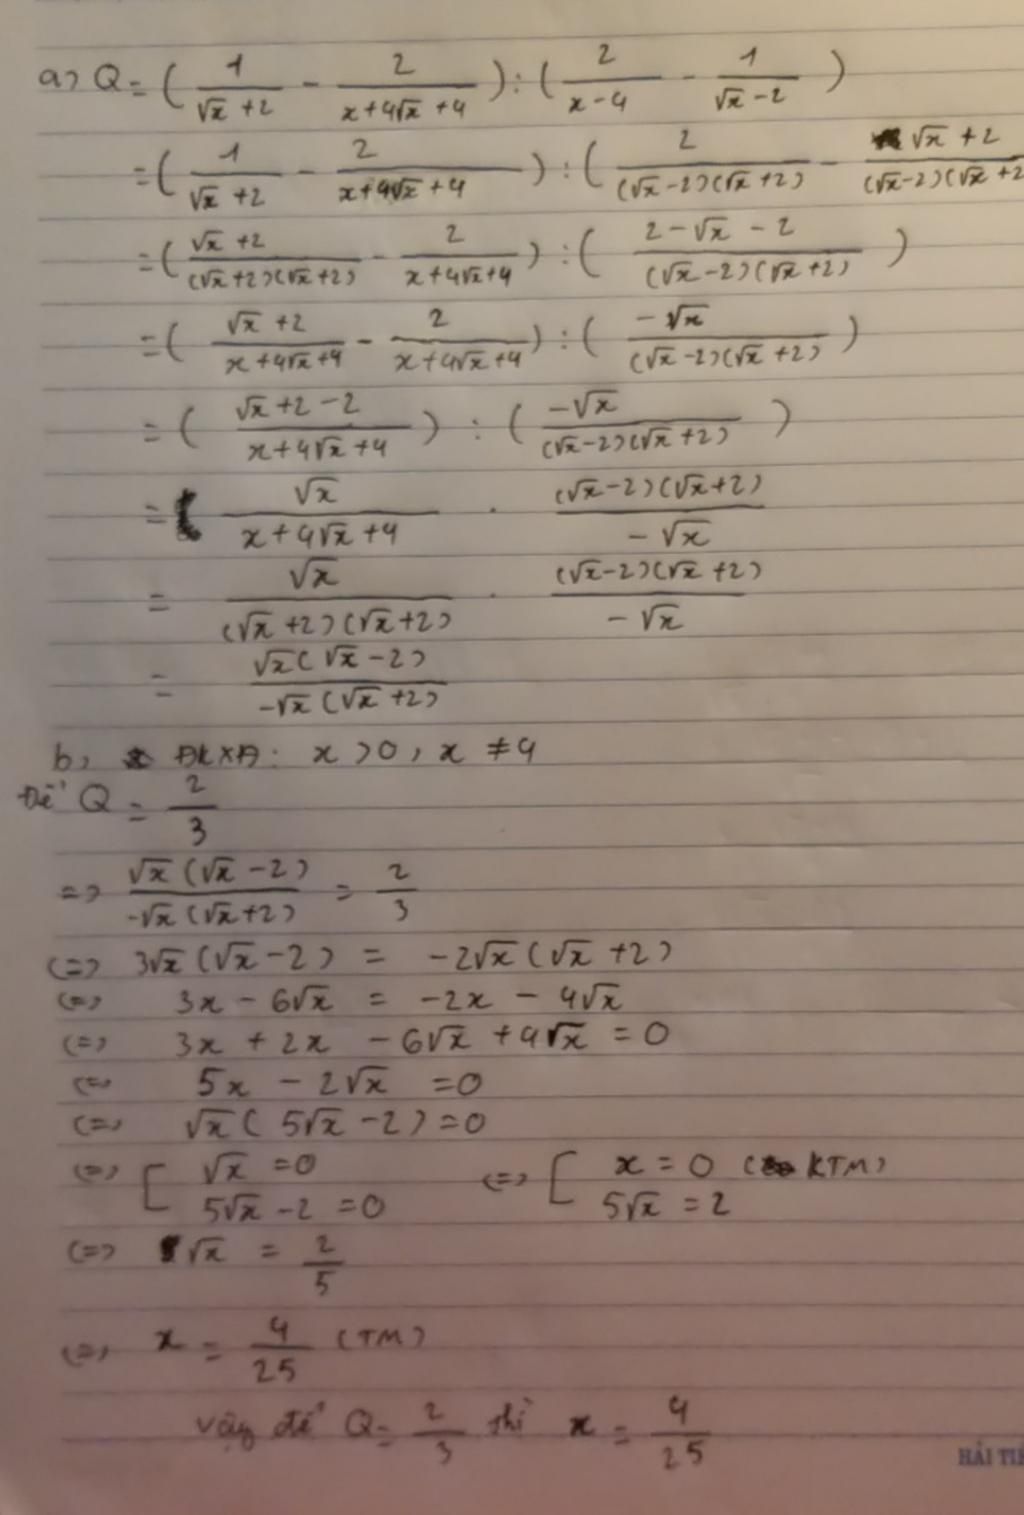 a) Q = ( 1/(√x +2) - 2/(x+4√x+4) ) : ( 2/(x-4) - 1/(√x-2) )
= ( 1/(√x +2) - 2/(x+4√x+4) ) : ( 2/((√x-2)(√x+2)) - (√x +2)/((√x-2)(√x+2
= ( (√x+2)/((√x+2)(√x+2)) - 2/(x+4√x+4) ) : ( (2-√x-2)/((√x-2)(√x+2)) )
= ( (√x+2)/(x+4√x+4) - 2/(x+4√x+4) ) : ( -√x/((√x-2)(√x+2)) )
= ( (√x+2-2)/(x+4√x+4) ) : ( -√x/((√x-2)(√x+2)) )
= √x/(x+4√x+4) . ((√x-2)(√x+2))/(-√x)
= √x/((√x+2)(√x+2)) . ((√x-2)(√x+2))/(-√x)
= (√x(√x-2))/(-√x(√x+2))
b, ĐKXĐ: x >0, x ≠4
Để Q = 2/3
=> (√x(√x-2))/(-√x(√x+2)) = 2/3
<=> 3√x(√x-2) = -2√x(√x+2)
<=> 3x - 6√x = -2x - 4√x
<=> 3x + 2x - 6√x + 4√x = 0
<=> 5x - 2√x =0
<=> √x( 5√x-2)=0
<=> [ √x =0 <=> [ x = 0 (KTM)
5√x-2=0 5√x = 2
<=> √x = 2/5
<=> x = 4/25 (TM)
Vậy để Q= 2/3 thì x = 4/25
HẢI TIẾ